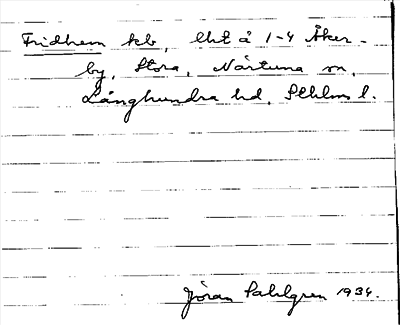 Fridhem kb, lht å 1-4 Åker-
by, Stora, Närtuna sn,
Långhundra hd, Sthlms l.
Jöran Sahlgren 1934.